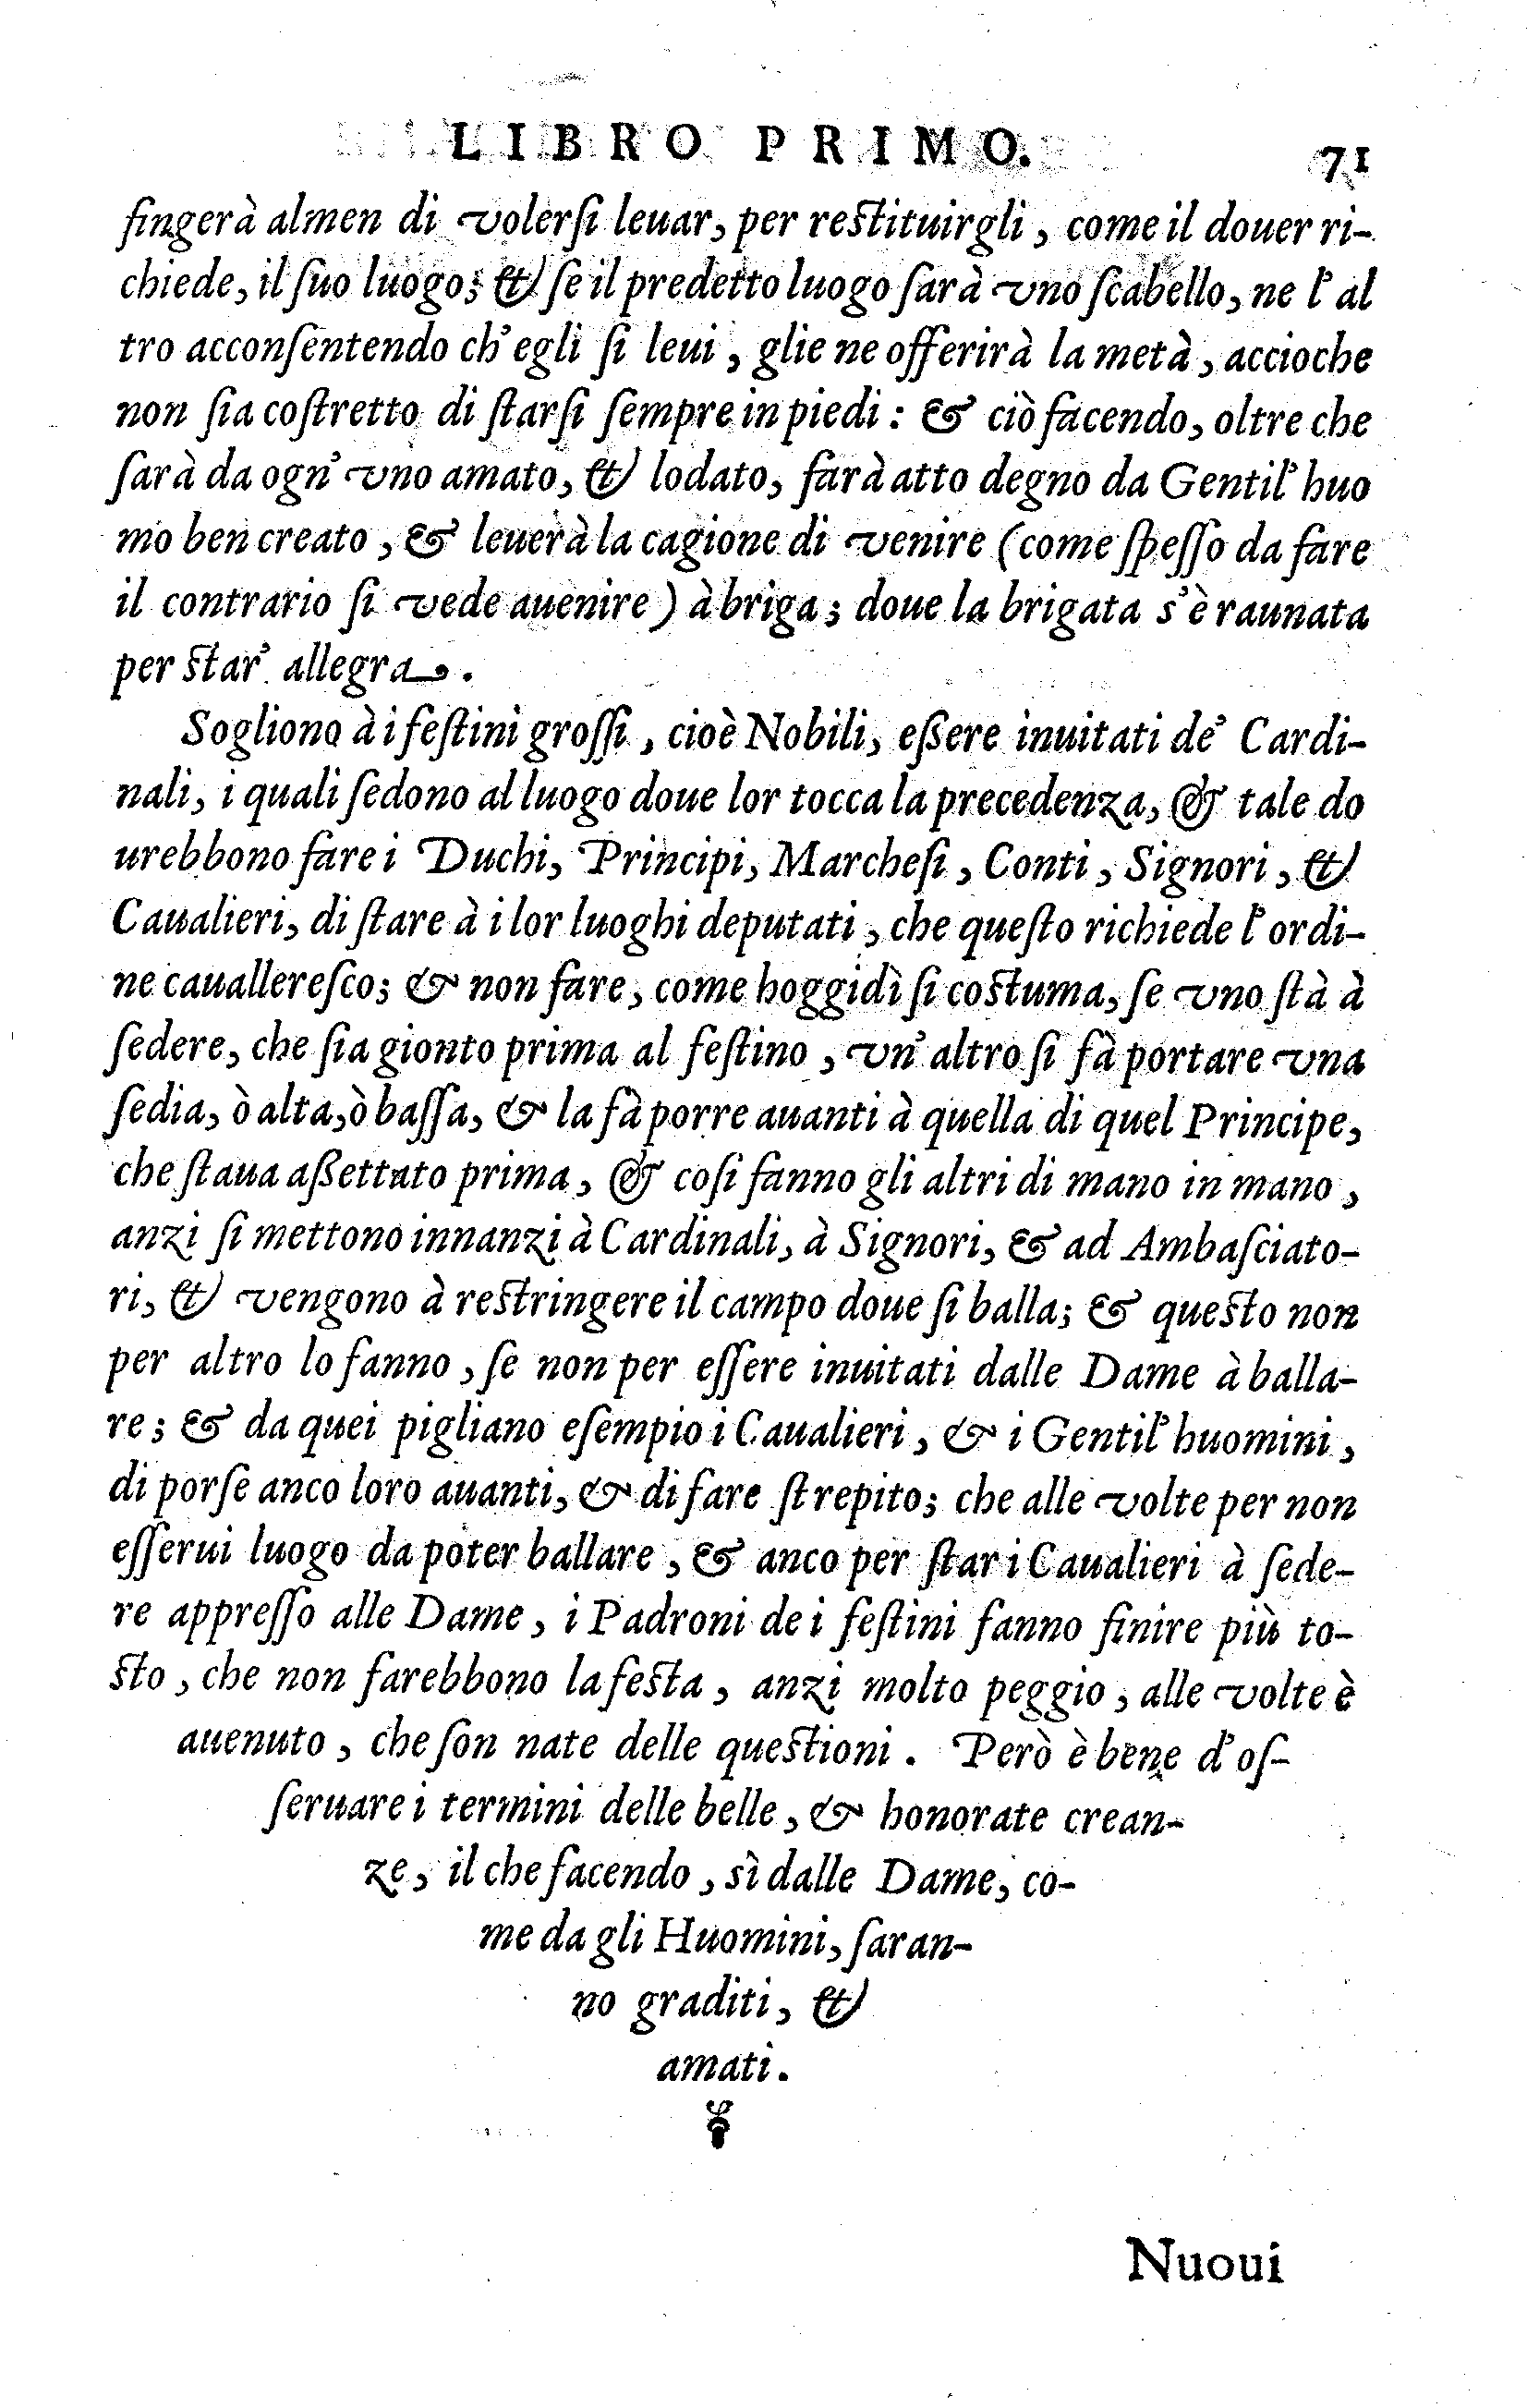 LIBRO PRIMO. 71
fingerà almen di volerſi leuar, per reſtituirgli, come il douer ri-
chiede, il ſuo luogo; & ſe il predetto luogo ſarà vno ſcabello, ne l'al
tro acconſentendo ch'egli ſi leui, glie ne offerirà la metà, accioche
non ſia coſtretto di ſtarſi ſempre in piedi: & ciò facendo, oltre che
ſarà da ogn'vno amato, & lodato, farà atto degno da Gentil'huo
mo ben creato, & leuerà la cagione di venire (come ſpeſſo da fare
il contrario ſi vede auenire) à briga; doue la brigata s'è raunata
per ſtar' allegra.
Sogliono à i feſtini groſſi, cioè Nobili, eßere inuitati de' Cardi-
nali, i quali ſedono al luogo doue lor tocca la precedenza, & tale do
urebbono fare i Duchi, Principi, Marcheſi, Conti, Signori, &
Caualieri, di ſtare à i lor luoghi deputati, che queſto richiede l'ordi-
ne caualleresco; & non fare, come hoggidì ſi coſtuma, ſe vno ſtà à
ſedere, che ſia gionto prima al feſtino, vn'altro ſi fà portare vna
ſedia, ò alta, ò baſſa, & la fà porre auanti à quella di quel Principe,
che ſtaua aßettato prima, & coſi fanno gli altri di mano in mano,
anzi ſi mettono innanzi à Cardinali, à Signori, & ad Ambaſciato-
ri, & vengono à reſtringere il campo doue ſi balla; & queſto non
per altro lo fanno, ſe non per eſſere inuitati dalle Dame à balla-
re; & da quei pigliano eſempio i Caualieri, & i Gentil'huomini,
di porſe anco loro auanti, & di fare ſtrepito; che alle volte per non
eſſerui luogo da poter ballare, & anco per ſtar i Caualieri à ſede-
re appreſſo alle Dame, i Padroni de i feſtini fanno finire più to-
ſto, che non farebbono la feſta, anzi molto peggio, alle volte è
auenuto, che ſon nate delle queſtioni. Però è bene d'oſ-
ſeruare i termini delle belle, & honorate crean-
ze, il che facendo, sì dalle Dame, co-
me da gli Huomini, ſaran-
no graditi, &
amati.
Nuoui